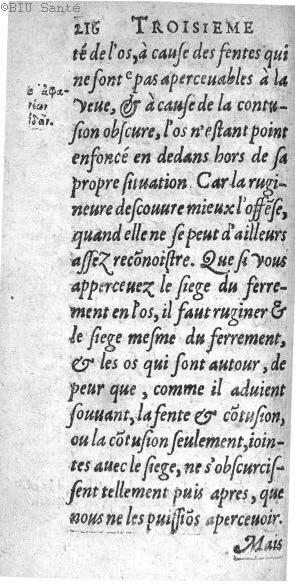 ©BIU Santé
216 TROISIEME
té de l'os, à cause des fentes qui
ne sont e pas aperceuables à la
veue, & à cause de la contu-
sion obscure, l'os n'estant point
enfoncé en dedans hors de sa
propre situation. Car la rugi-
neure descouure mieux l'offẽse,
quand elle ne se peut d'ailleurs
assez recõnoistre. Que si vous
apperceuez le siege du ferre-
ment en l'os, il faut ruginer &
le siege mesme du ferrement,
& les os qui sont autour, de
peur que, comme il aduient
souuant, la fente & cõtusion,
ou la cõtusion seulement, ioin-
tes auec le siege, ne s'obscurcis-
sent tellement puis apres, que
nous ne les puissiõs aperceuoir.
Mais
e ἀφα-
νέων
ἰδεῖν.